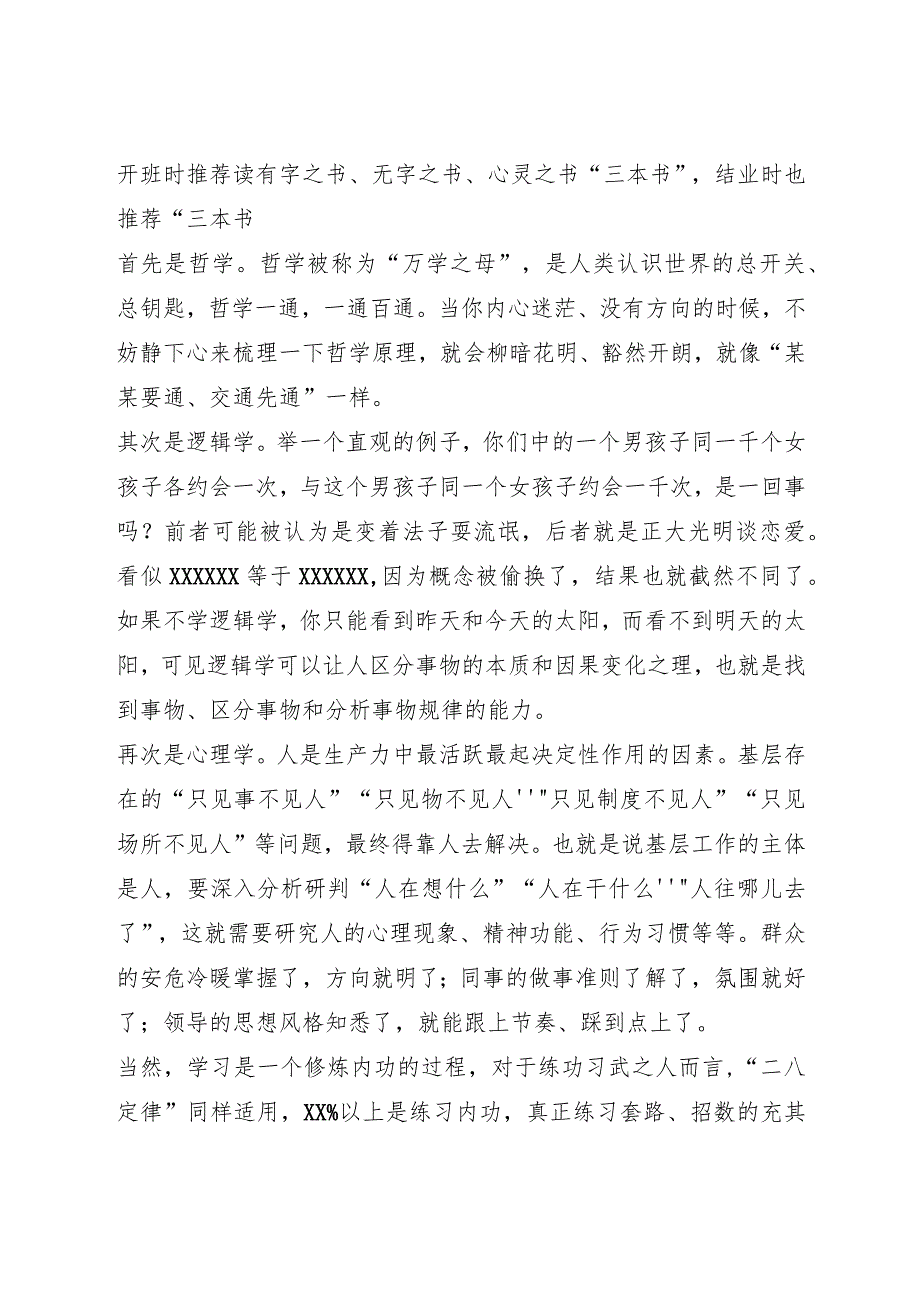 开班时推荐读有字之书、无字之书、心灵之书“三本书”，结业时也
推荐“三本书
首先是哲学。哲学被称为“万学之母”，是人类认识世界的总开关、
总钥匙，哲学一通，一通百通。当你内心迷茫、没有方向的时候，不
妨静下心来梳理一下哲学原理，就会柳暗花明、豁然开朗，就像“某
某要通、交通先通”一样。
其次是逻辑学。举一个直观的例子，你们中的一个男孩子同一千个女
孩子各约会一次，与这个男孩子同一个女孩子约会一千次，是一回事
吗？前者可能被认为是变着法子耍流氓，后者就是正大光明谈恋爱。
看似XXXXXX等于XXXXXX,因为概念被偷换了，结果也就截然不同了。
如果不学逻辑学，你只能看到昨天和今天的太阳，而看不到明天的太
阳，可见逻辑学可以让人区分事物的本质和因果变化之理，也就是找
到事物、区分事物和分析事物规律的能力。
再次是心理学。人是生产力中最活跃最起决定性作用的因素。基层存
在的“只见事不见人”“只见物不见人''"只见制度不见人”“只见
场所不见人”等问题，最终得靠人去解决。也就是说基层工作的主体
是人，要深入分析研判“人在想什么”“人在干什么''"人往哪儿去
了”，这就需要研究人的心理现象、精神功能、行为习惯等等。群众
的安危冷暖掌握了，方向就明了；同事的做事准则了解了，氛围就好
了；领导的思想风格知悉了，就能跟上节奏、踩到点上了。
当然，学习是一个修炼内功的过程，对于练功习武之人而言,“二八
定律”同样适用，XX%以上是练习内功，真正练习套路、招数的充其